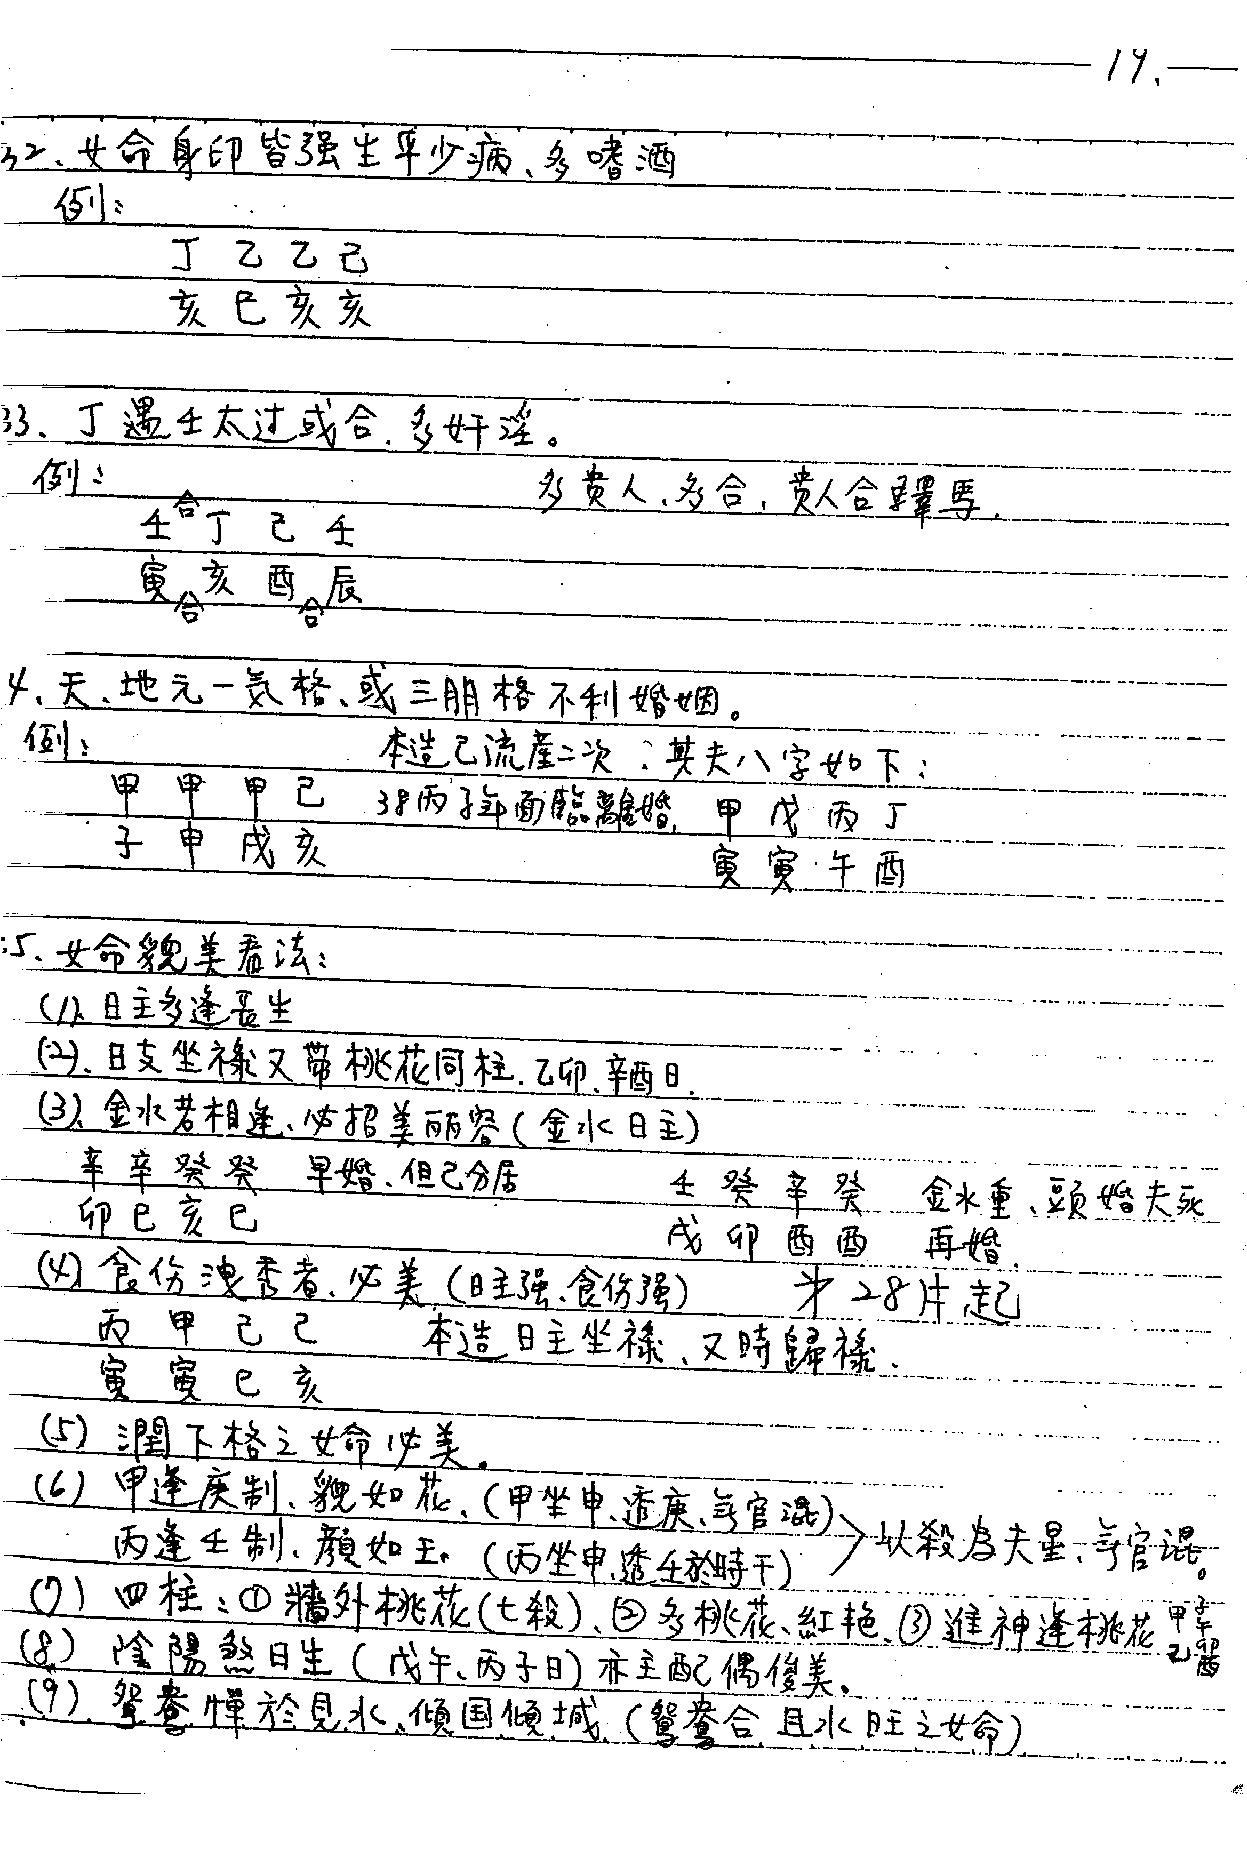 19.
32、女命身印皆强生平少病、多嗜酒
例：
丁 乙 乙 己
亥 巳 亥 亥
33、丁遇壬太过或合，多奸淫。
例： 多贵人、多合，贵人合驛馬，
壬 合 丁 己 壬
寅 亥 酉 辰
合 合
4、天、地元一気格、或三朋格不利婚姻。
例： 本造已流産二次：其夫八字如下：
甲 甲 甲 己 38丙子年面臨離婚， 甲 戊 丙 丁
子 申 戌 亥 寅 寅 午 酉
5、女命貌美看法：
(1)、日主多逢長生
(2)、日支坐祿又帶桃花同柱，乙卯、辛酉日，
(3)、金水若相逢、必招美丽容(金水日主)
辛 辛 癸 癸 早婚、但已分居 壬 癸 辛 癸 金水重、頭婚夫死
卯 巳 亥 巳 戌 卯 酉 酉 再婚，
(4) 食伤洩秀者、必美(日主强、食伤强) 才28片起
丙 甲 己 己 本造日主坐祿、又時歸祿、
寅 寅 巳 亥
(5) 潤下格之女命必美。
(6) 甲逢庚制、貌如花、(甲坐申、透庚、無官混)
丙逢壬制、顔如玉。(丙坐申、透壬於時干) 以殺為夫星、無官混。
(7) 四柱：①牆外桃花(七殺)、②多桃花、紅艳、③進神逢桃花 甲子午 乙卯酉
(8) 陰陽煞日生(戊午、丙子日)亦主配偶俊美。
(9)、鴛鴦憚於見水、傾国傾城，(鴛鴦合且水旺之女命)